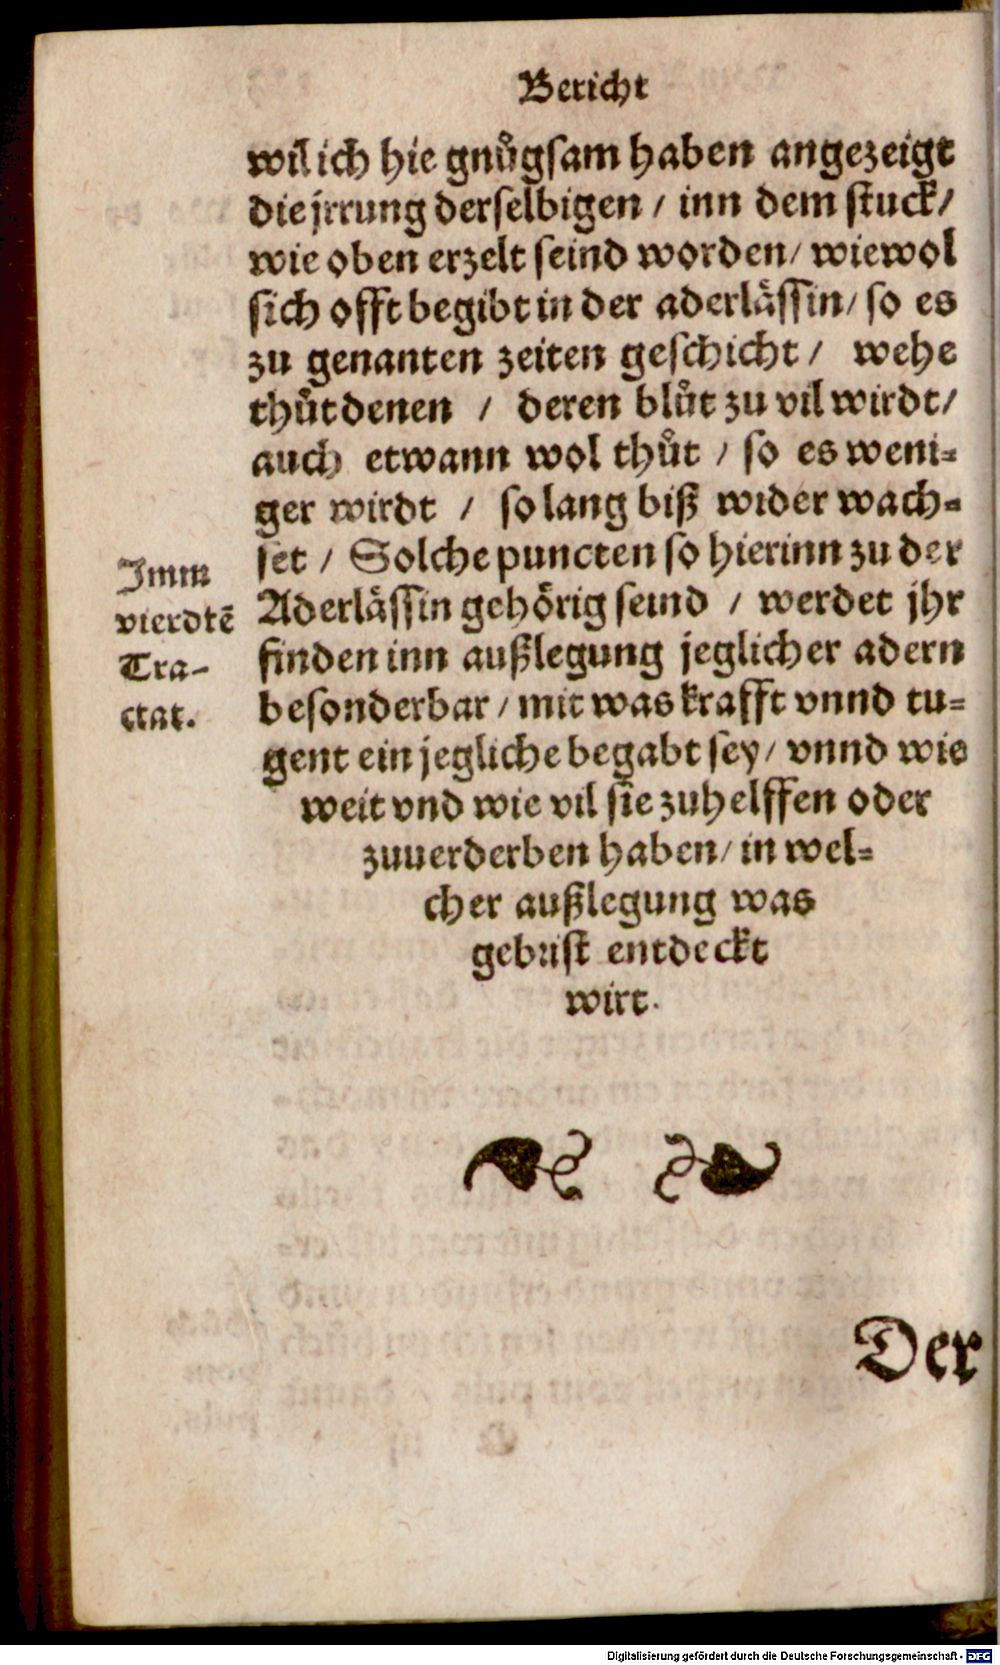 Bericht
wil ich hie gnůgsam haben angezeigt
die jrrung derselbigen / inn dem stuck /
wie oben erzelt seind worden / wiewol
sich offt begibt in der aderlässin / so es
zu genanten zeiten geschicht / wehe
thůt denen / deren blůt zu vil wirdt /
auch etwann wol thůt / so es weni⸗
ger wirdt / so lang biß wider wach⸗
set / Solche puncten so hierinn zu der
Aderlässin gehörig seind / werdet jhr
finden inn außlegung jeglicher adern
besonderbar / mit was krafft vnnd tu⸗
gent ein jegliche begabt sey / vnnd wie
weit vnd wie vil sie zuhelffen oder
zuuerderben haben / in wel⸗
cher außlegung was
gebrist entdeckt
wirt.
Imm
vierdtē
Tra-
ctat.
Der
Digitalisierung gefördert durch die Deutsche Forschungsgemeinschaft - DFG